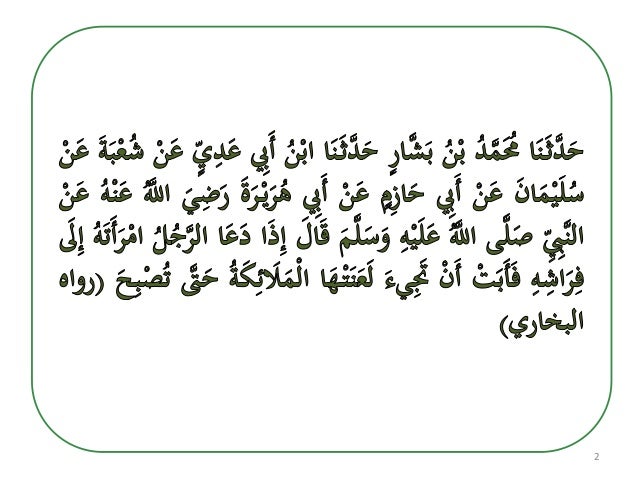 حَدَّثَنَا مُحَمَّدُ بْنُ بَشَّارٍ حَدَّثَنَا ابْنُ أَبِي عَدِيٍّ عَنْ شُعْبَةَ عَنْ
سُلَيْمَانَ عَنْ أَبِي حَازِمٍ عَنْ أَبِي هُرَيْرَةَ رَضِيَ اللَّهُ عَنْهُ عَنْ
النَّبِيِّ صَلَّى اللَّهُ عَلَيْهِ وَسَلَّمَ قَالَ إِذَا دَعَا الرَّجُلُ امْرَأَتَهُ إِلَى
فِرَاشِهِ فَأَبَتْ أَنْ تَجِيءَ لَعَنَتْهَا الْمَلَائِكَةُ حَتَّى تُصْبِحَ (رواه
البخاري)
2